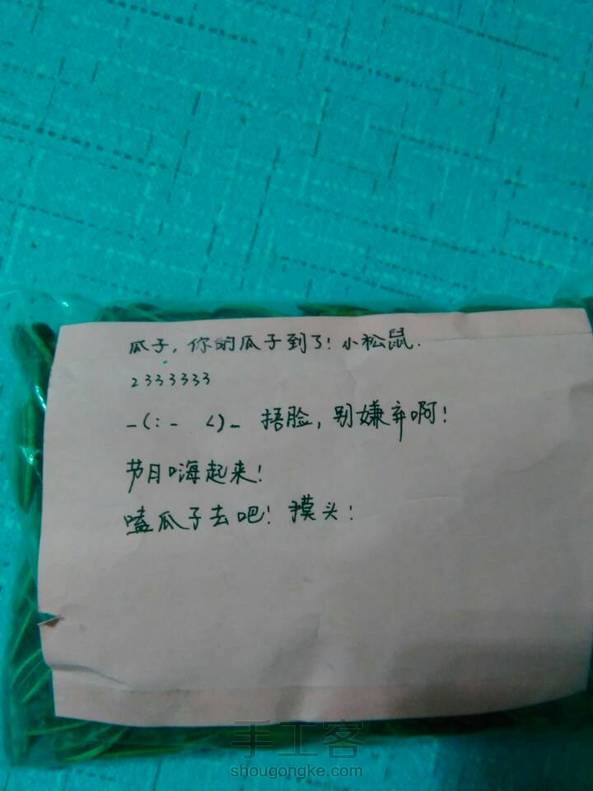 瓜子，你的瓜子到了！小松鼠.
2333333
_(:_ <)_ 捂脸，别嫌弃啊！
节月嗨起来！
嗑瓜子去吧！摸头！
手工客
shougongke.com